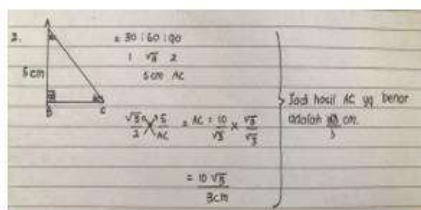 2.
A
5cm
B
C
= 30 : 60 : 90
1 √3 2
5cm AC
√3/2 5/AC = AC = 10/√3 × √3/√3
= 10√3/3cm
Jadi hasil AC yg benar
adalah cm.